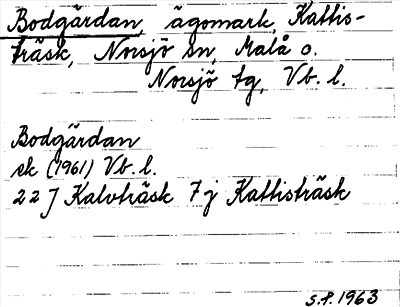 Bodgärdan, ägomark, Kattis-
träsk, Norsjö sn, Malå o.
Norsjö tg, Vb. l.
Bodgärdan
ek (1961) Vb. l.
22 J Kalvträsk 7 j Kattisträsk
S.P. 1963